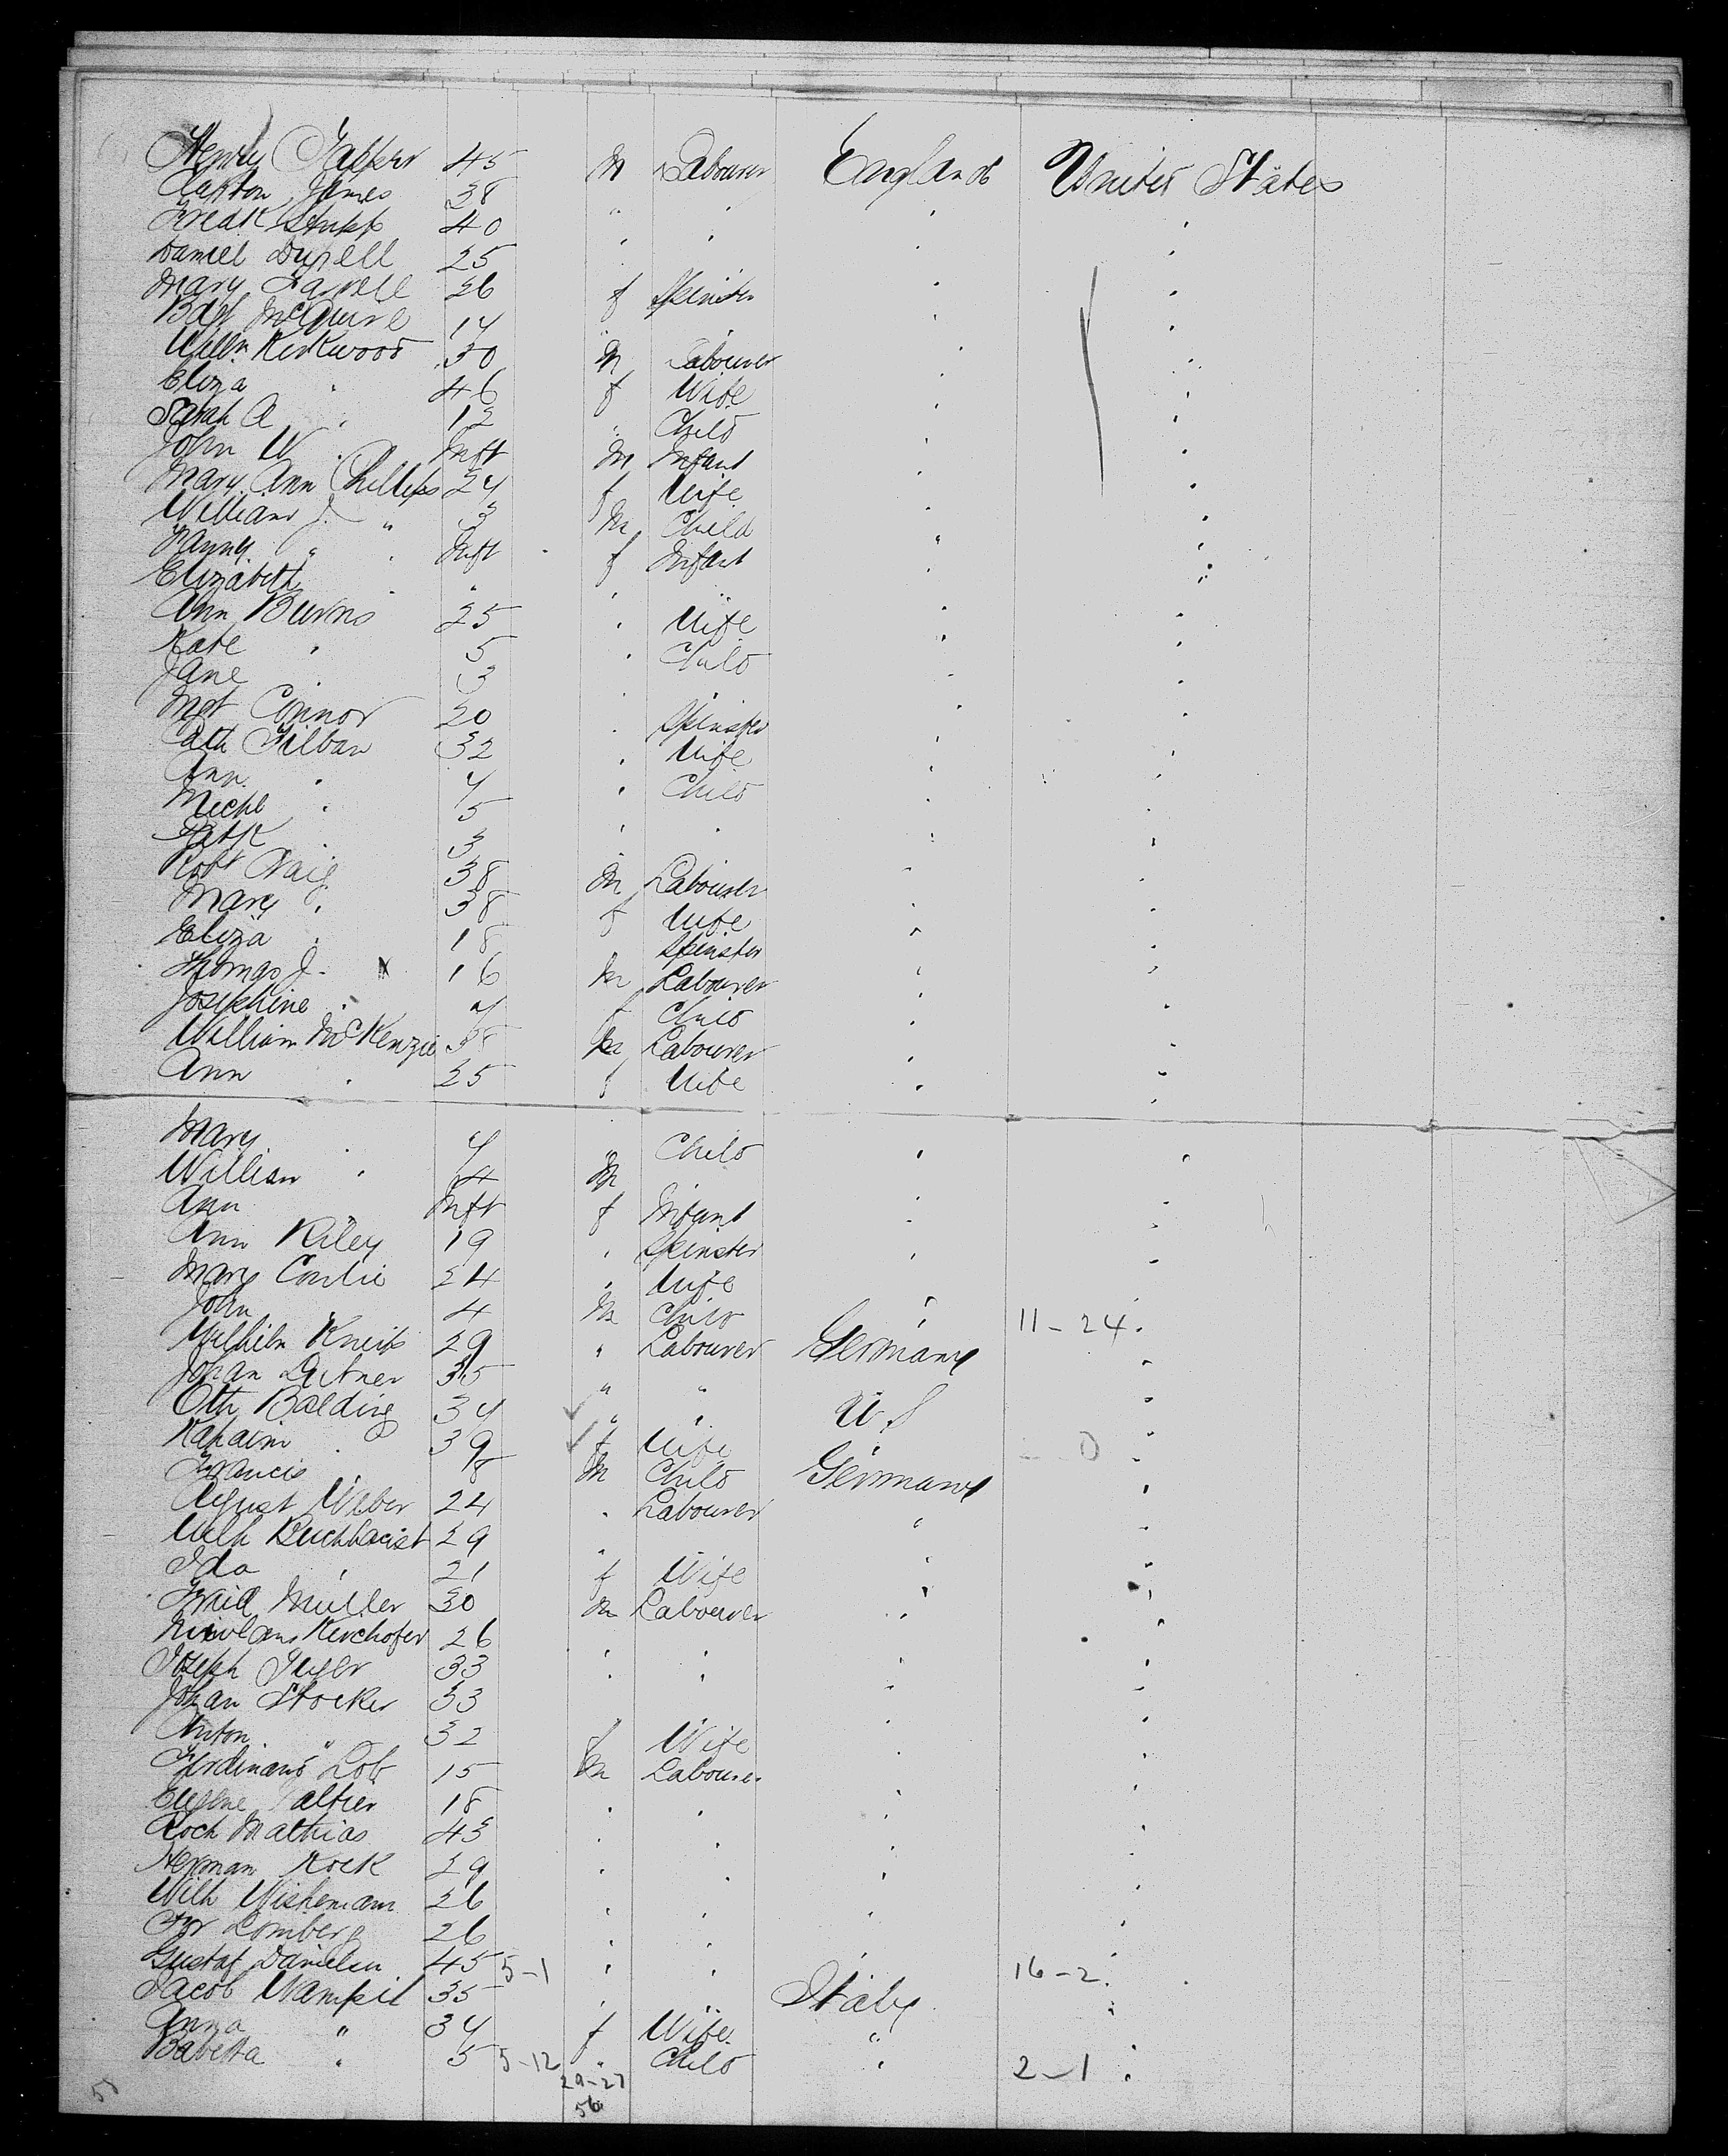 Henry Tapper 45 M Labourer England United States
Clapton James 38 " " " "
Fredk Stupp 40 " " " "
Daniel Dupell 25
Mary Farrell 26 f Spinster " "
McGuire 14 " " " "
Willm Kirkwood 30 M Labourer " "
Eliza " 46 f Wife " "
Sarah A " 12 " Child " "
John W " Inft M Infant " "
Mary Ann Phillips 24 f Wife " "
William J. " 3 M Child " "
Fanny " Inft f Infant " "
Elizabeth " " " " " "
Ann Burns 25 " Wife " "
Kate " 5 " Child " "
Jane " 3 " " " "
Mgt Connor 20 " Spinster " "
Cath Gilban 32 " Wife " "
Ann " 7 " Child " "
Michl " 5 " " " "
Patk " 3 " " " "
Robt Craig 38 M Labourer " "
Mary " 38 f Wife " "
Eliza " 18 Spinster " "
Thomas J. " 16 M Labourer " "
Josephine " 7 f Child " "
William McKenzie 38 M Labourer " "
Ann " 25 f Wife " "
Mary " 7 " Child " "
William " 4 M
Ann " Inft f Infant " "
Ann Riley 19 " Spinster " "
Mary 24 " Wife "
John " 4 M Child " 11-24 "
Wilhilm 29 " Labourer Germany "
Johan 35 " " "
Otto Balding 34 " " U.S "
" 39 f Wife 0 "
Francis " 8 M Child Germany "
August Weber 24 " Labourer " "
Wilh 29 " " "
Ida " 21 f Wife " "
Fried Muller 30 M Labourer " "
Kirchofer 26 " " " "
Joseph 33 " " " "
Johan Stocker 33
Anton " 32 f Wife " "
Ferdinand Lob 15 M Labourer " "
Eugene 18 " " " "
Roch Mathias 43 " " " "
Herman Rock 29 " " " "
Wilh Wishemann 26 " " " "
Fr Lomberg 26 " " "
Gustaf Danielsen 45 5-1 " " 16-2 "
Jacob Wampil 35 " " Italy "
Anna " 34 f Wife " "
Babetta " 5 5-12 " Child " 2-1 "
29-27
56